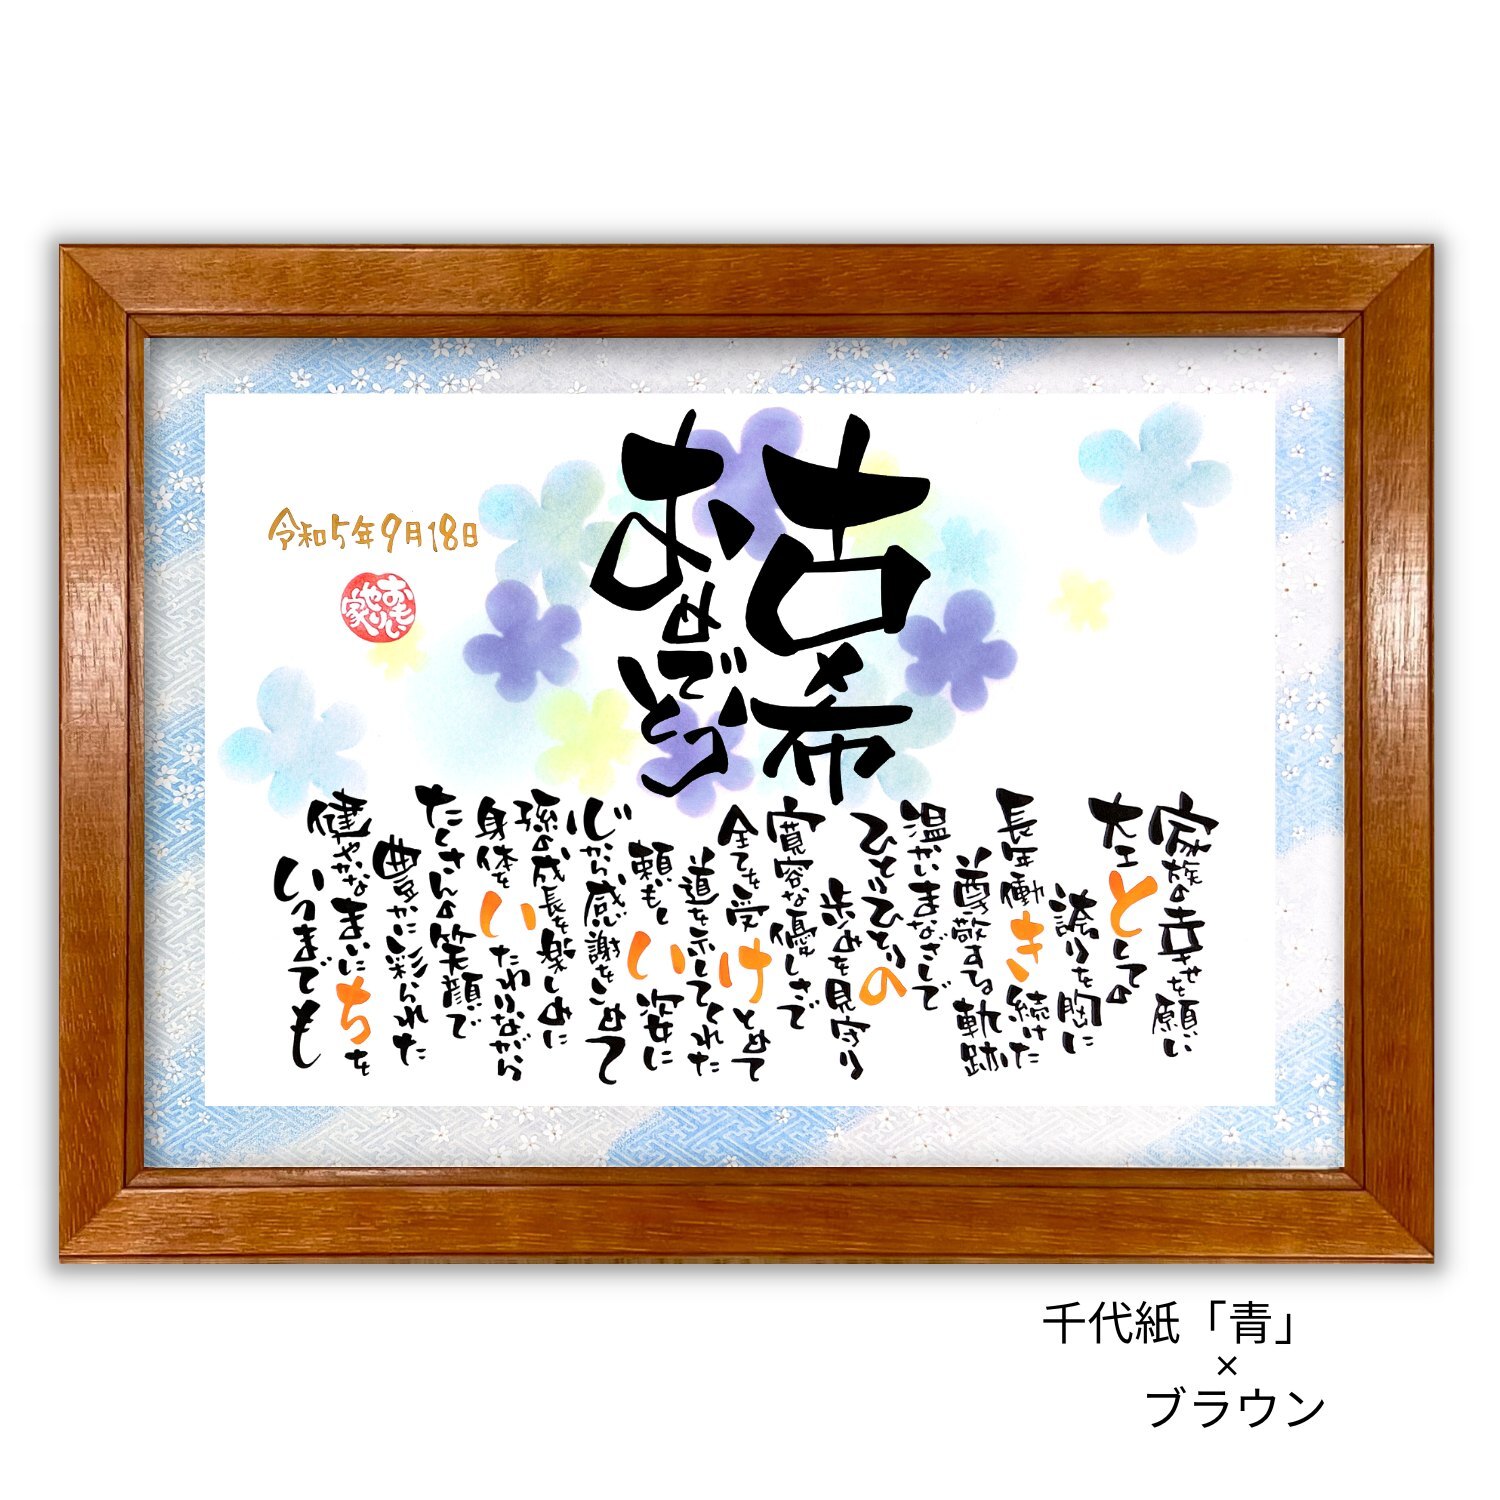 古希
おめでとう
令和5年9月18日
おもいやり家
家族の幸せを願い
大工としての
誇りを胸に
長年働き続けた
尊敬する軌跡
温かいまなざしで
ひとりひとりの
歩みを見守り
寛容な優しさで
全てを受けとめて
道を示してくれた
頼もしい姿に
心から感謝をこめて
孫の成長を楽しみに
身体をいたわりながら
たくさんの笑顔で
豊かに彩られた
健やかなまいにちを
いつまでも
千代紙「青」
×
ブラウン